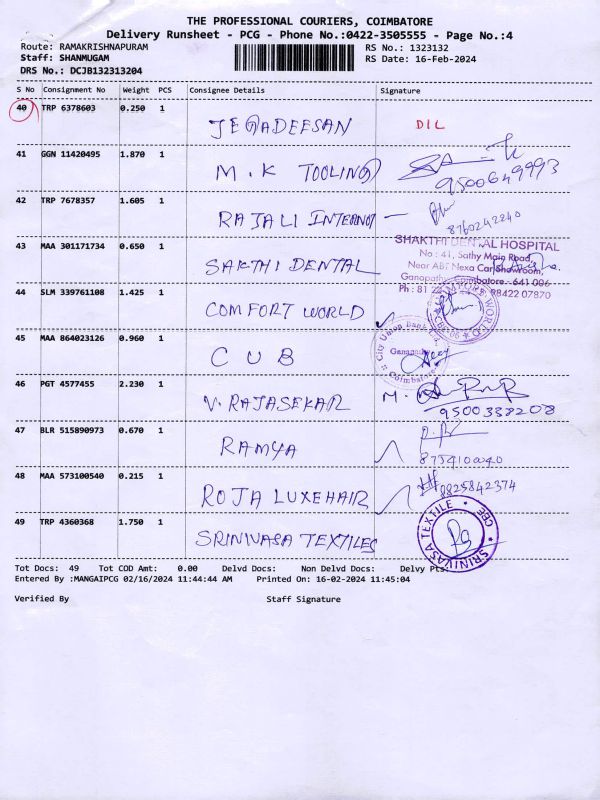 THE PROFESSIONAL COURIERS, COIMBATORE
Delivery Runsheet - PCG - Phone No.:0422-3505555 - Page No.:4
Route: RAMAKRISHNAPURAM RS No.: 1323132
Staff: SHANMUGAM RS Date: 16-Feb-2024
DRS No.: DCJB132313204
S No Consignment No Weight PCS Consignee Details Signature
40 TRP 6378603 0.250 1 JEGADEESAN DIL
41 GGN 11420495 1.870 1 M.K TOOLING
9500649993
42 TRP 7678357 1.605 1 RAJALI INTERNOT
8760242240
43 MAA 301171734 0.650 1 SAKTHI DENTAL
SHAKTHI DENTAL HOSPITAL
No : 41, Sathy Main Road,
Near ABT Nexa Car Showroom,
Ganapathy, Coimbatore - 641 006
Ph : 81 98422 07870
44 SLM 339761108 1.425 1 COMFORT WORLD
WORLD
45 MAA 864023126 0.960 1 CUB
City Union Bank
Coimbatore
46 PGT 4577455 2.230 1 V. RAJASEKAR
9500338208
47 BLR 515890973 0.670 1 RAMYA
48 MAA 573100540 0.215 1 ROJA LUXEHAIR
8825842374
49 TRP 4360368 1.750 1 SRINIVASA TEXTILES
SRINIVASA TEXTILE CBE
Tot Docs: 49 Tot COD Amt: 0.00 Delvd Docs: Non Delvd Docs: Delvy Pts:
Entered By :MANGAIPCG 02/16/2024 11:44:44 AM Printed On: 16-02-2024 11:45:04
Verified By Staff Signature